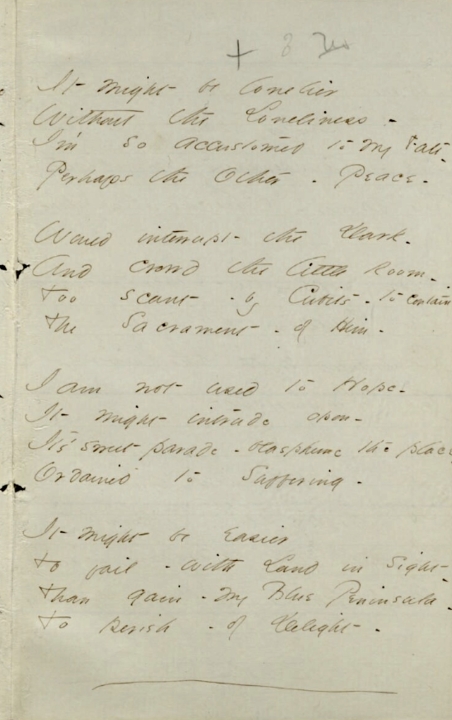 +
It might be lonelier
Without the Loneliness -
I'm so accustomed to my Fate -
Perhaps the Other - Peace -
Would interrupt the Dark -
And crowd the little Room -
Too scant - by Cubits - to contain
The Sacrament - of Him -
I am not used to Hope -
It might intrude opon -
It's sweet parade - blaspheme the place -
Ordained to Suffering -
It might be easier
To fail - with Land in Sight -
Than gain - My Blue Peninsula -
To perish - of Delight -